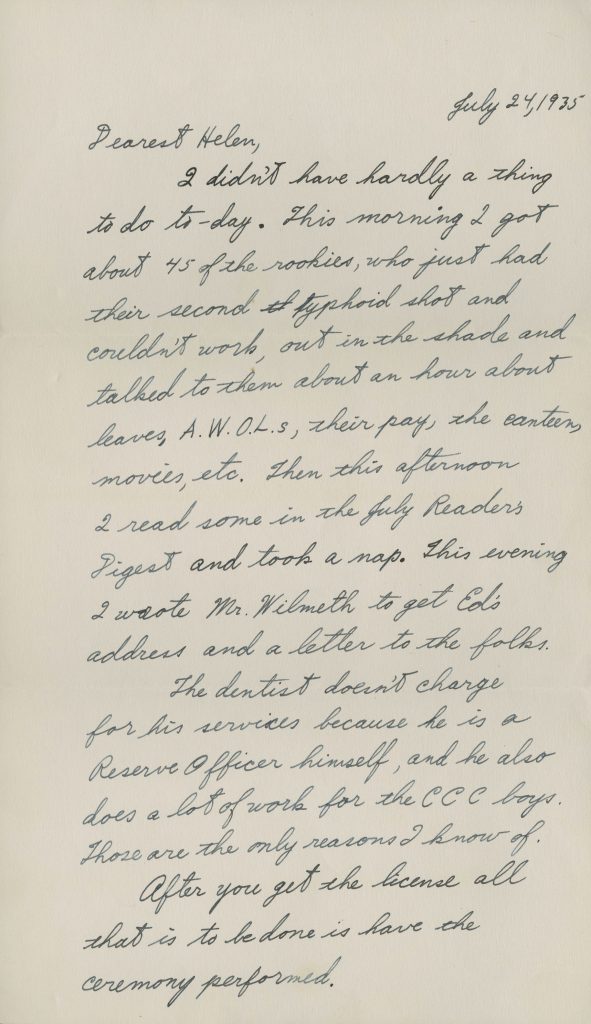 July 24, 1935
Dearest Helen,
I didn't have hardly a thing
to do to-day. This morning I got
about 45 of the rookies, who just had
their second typhoid shot and
couldn't work, out in the shade and
talked to them about an hour about
leaves, A.W.O.L.s, their pay, the canteen,
movies, etc. Then this afternoon
I read some in the July Readers
Digest and took a nap. This evening
I wrote Mr. Wilmeth to get Ed's
address and a letter to the folks.
The dentist doesn't charge
for his services because he is a
Reserve Officer himself, and he also
does a lot of work for the CCC boys.
Those are the only reasons I know of.
After you get the license all
that is to be done is have the
ceremony performed.